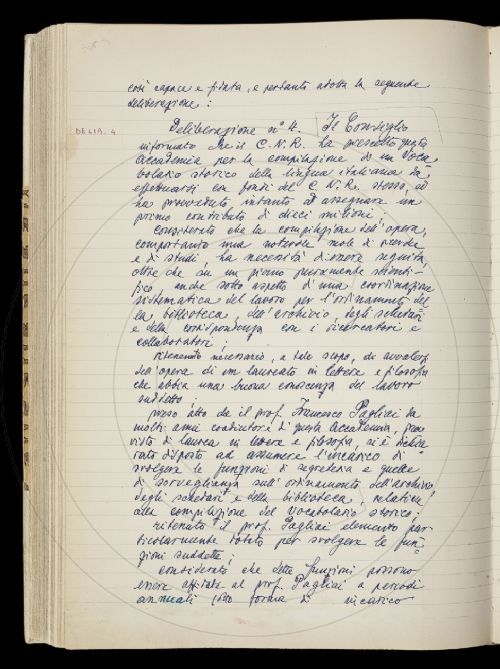 così capace e fidata, e pertanto adotta la seguente
deliberazione:
DELIB. 4
Deliberazione n° 4. Il Consiglio
informato che il C.N.R. ha prescelto questa
Accademia per la compilazione di un Voca=
bolario storico della lingua italiana da
effettuarsi con fondi del C.N.R. stesso, ed
ha provveduto intanto ad assegnare un
primo contributo di dieci milioni;
considerato che la compilazione dell'opera,
comportando una notevole mole di ricerche
e di studi, ha necessità di essere seguita,
oltre che su un piano puramente scienti=
fico anche sotto aspetti di una coordinazione
sistematica del lavoro per l'ordinamento del
la biblioteca, dell'archivio, degli schedari
e della corrispondenza con i ricercatori e
collaboratori;
ritenuto necessario, a tale scopo, di avvalersi
dell'opera di un laureato in lettere e filosofia
che abbia una buona conoscenza del lavoro
suddetto;
preso atto che il prof. Francesco Pagliai da
molti anni coadiutore di questa Accademia, prov
visto di laurea in lettere e filosofia, si è dichia
rato disposto ad assumere l'incarico di
svolgere le funzioni di segreteria e quelle
di sorveglianza sull'ordinamento dell'archivio
degli schedari e della biblioteca, relativi
alla compilazione del Vocabolario storico;
ritenuto il prof. Pagliai elemento par
ticolarmente dotato per svolgere le fun=
zioni suddette;
considerato che dette funzioni possono
essere affidate al prof. Pagliai a periodi
annuali sotto forma di incarico